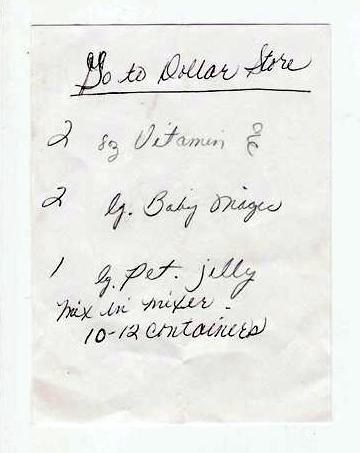 Go to Dollar Store
2 8z Vitamin E
2 lg. Baby Magic
1 lg. Pet. jelly
mix in mixer.
10-12 containers